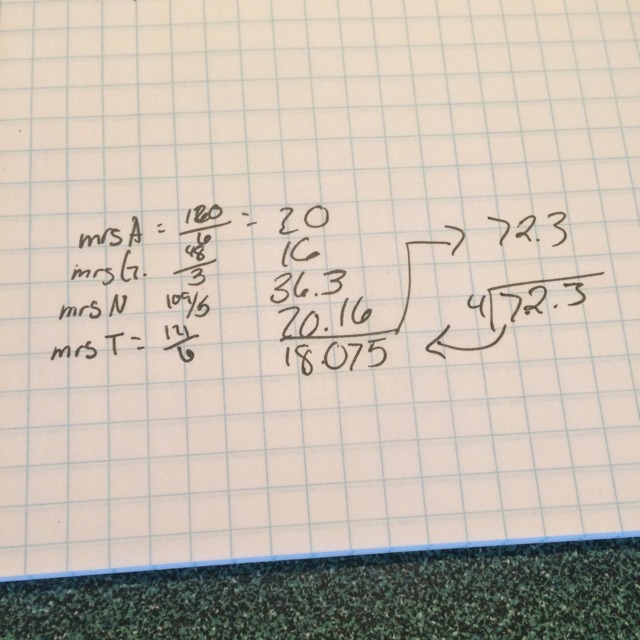 mrs A = 120/6 = 20
mrs G. 48/3 16
mrs N 109/5 36.3
mrs T = 121/6 20.16
18.075
72.3
4)72.3